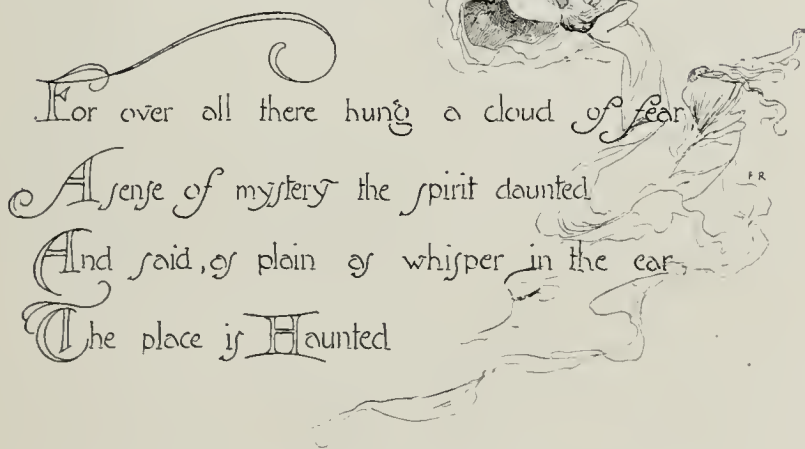 For over all there hung a cloud of fear
A ſenſe of myſtery the ſpirit daunted
F R
And ſaid, aſ plain aſ whiſper in the ear,
The place iſ Haunted